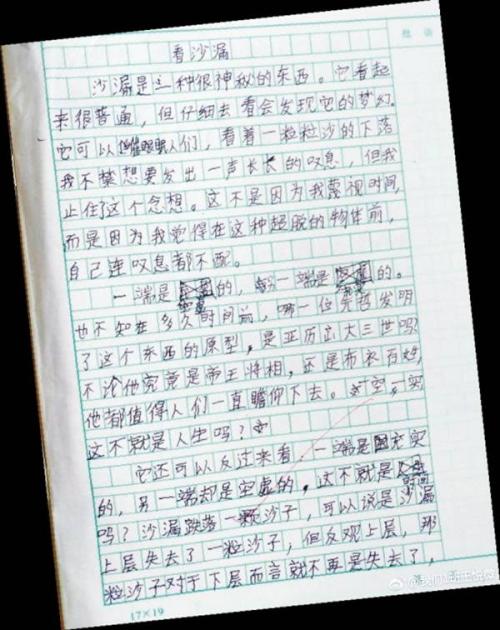 看沙漏
沙漏是一种很神秘的东西。它看起
来很普通，但仔细去看会发现它的梦幻。
它可以催眠人们，看着一粒粒沙的下落
我不禁想要发出一声长长的叹息，但我
止住了这个念想。这不是因为我蔑视时间，
而是因为我觉得在这种超脱的物体前，
自己连叹息都不配。
一端是空虚的，另一端是充实的。
也不知在多久时间前，哪一位先哲发明
了这个东西的原型，是亚历山大三世吗？
不论他究竟是帝王将相，还是布衣百姓，
他都值得人们一直瞻仰下去。一空，一实
这不就是人生吗？
它还可以反过来看，一端是充实
的，另一端却是空虚的，这不就是
吗？沙漏跌落一颗沙子，可以说是沙漏
上层失去了一粒沙子，但反观上层，那
粒沙子对于下层而言就不再是失去了，
17×19